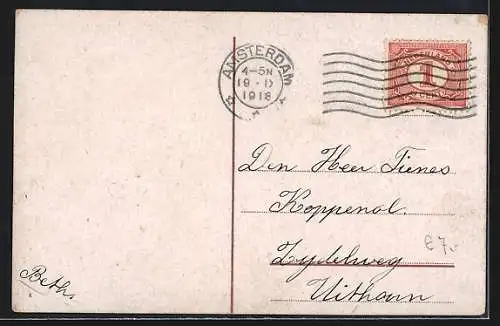 AMSTERDAM
4-5N
1918
1
Den Heer Tienes
Koppenol
Zydelweg
Uithoorn
€7,-
Beths